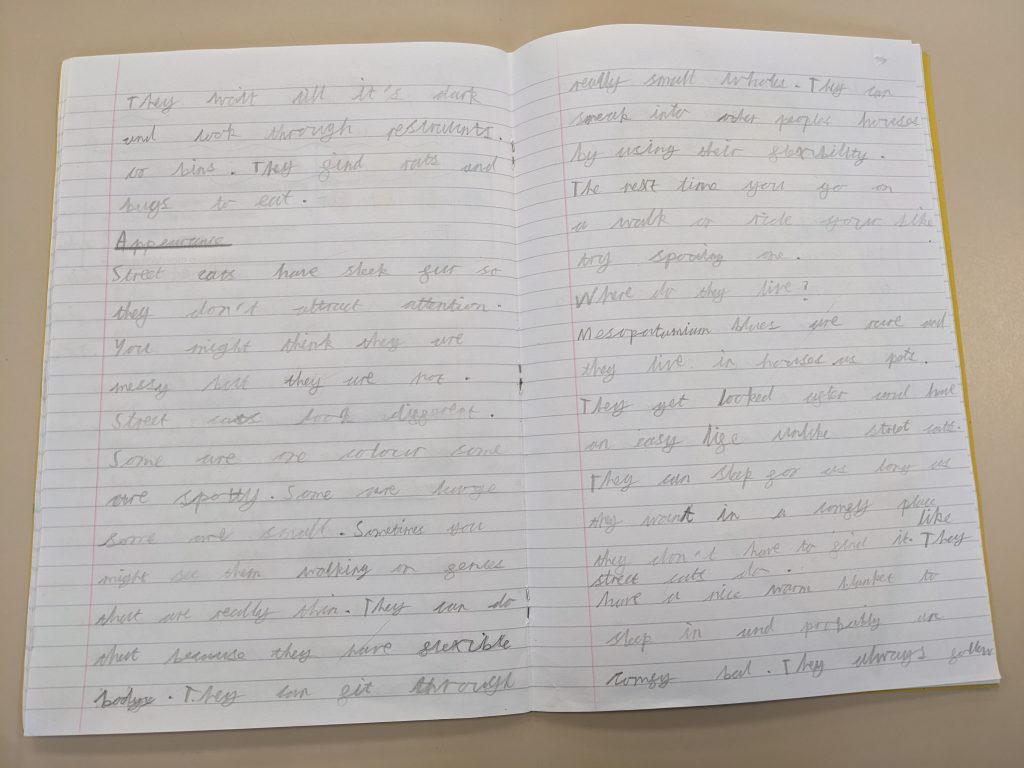 They wait till it's dark
and look through restraunts.
to bins. They find rats and
bugs to eat.
Appearance
Street cats have sleek fur so
they don't attract attention.
You might think they are
messy but they are not.
Street cats look different.
Some are one colour some
are spotty. Some are large
some are small. Sometimes you
might see them walking on fences
that are really thin. They can do
that because they have flexible
bodys. They can fit through
really small wholes. They can
sneak into other peoples houses
by using their flexibility.
The next time you go on
a walk or ride your bike
try spoting one.
Where do they live?
Mesopotamium blues are rare and
they live in houses as pets.
They get looked after and have
an easy life unlike street cats.
They can sleep for as long as
they want in a comfy place
they don't have to find it like
street cats do. They
have a nice warm blanket to
sleep in and probably an
comfy bed. They always follow